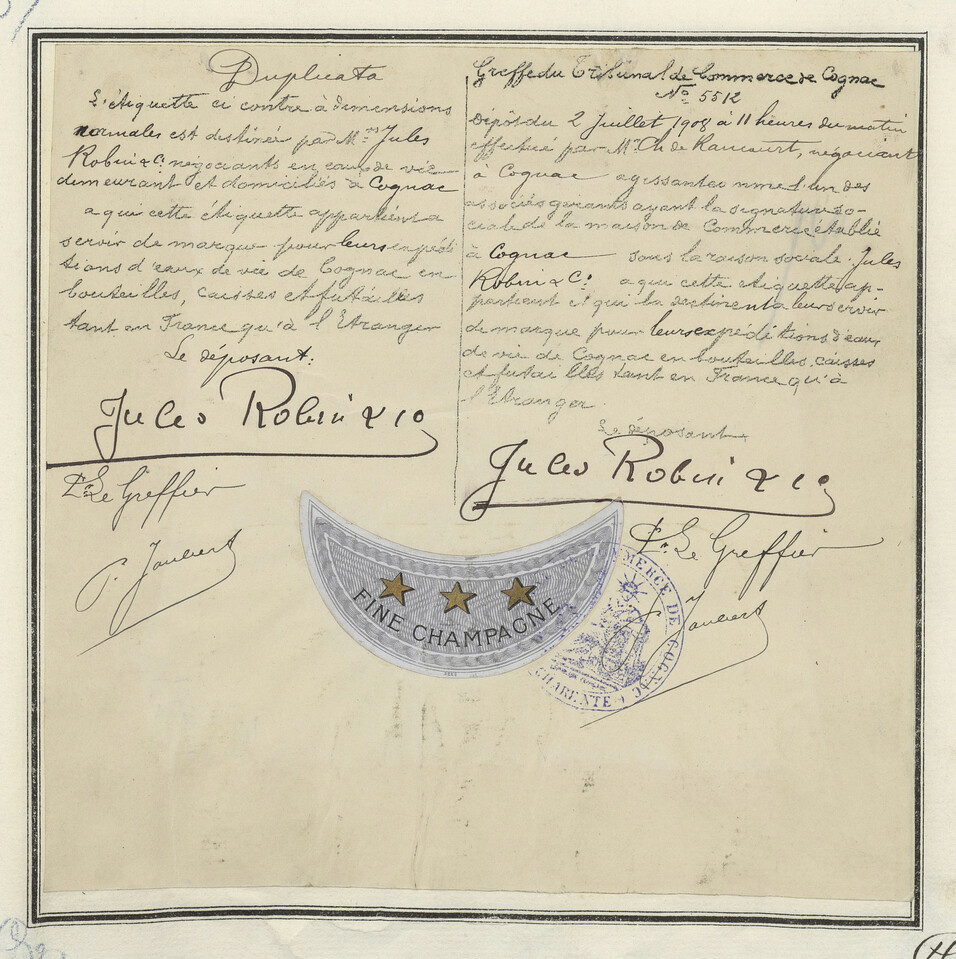 Duplicata
L'étiquette ci contre à dimensions
normales est destinée par M.rs Jules
Robin & Cº négociants en eaux de vie
demeurant et domiciliés à Cognac
a qui cette étiquette appartient a
servir de marque pour leurs expédi
tions d'eaux de vie de Cognac en
bouteilles, caisses et futailles
tant en France qu'à l'Etranger
Le déposant:
Jules Robin & Co
Pr Le Greffier
P. Jaubert
Greffe du Tribunal de Commerce de Cognac
Nº 5512
Dépôt du 2 Juillet 1908 à 11 heures du matin
effectué par Mr Ch de Raucourt, négociant
à Cognac agissant comme l'un des
associés gérants ayant la signature so-
ciale de la maison de Commerce établie
à Cognac sous la raison sociale: Jules
Robin & Cº a qui cette étiquette ap-
partient et qui la destinent a leur servir
de marque pour leurs expéditions d'eaux
de vie de Cognac en bouteilles, caisses
et futailles tant en France qu'à
l'Etranger.
Le déposant
Jules Robin & Co
Pr Le Greffier
P. Jaubert
FINE CHAMPAGNE
COMMERCE DE COGNAC
CHARENTE